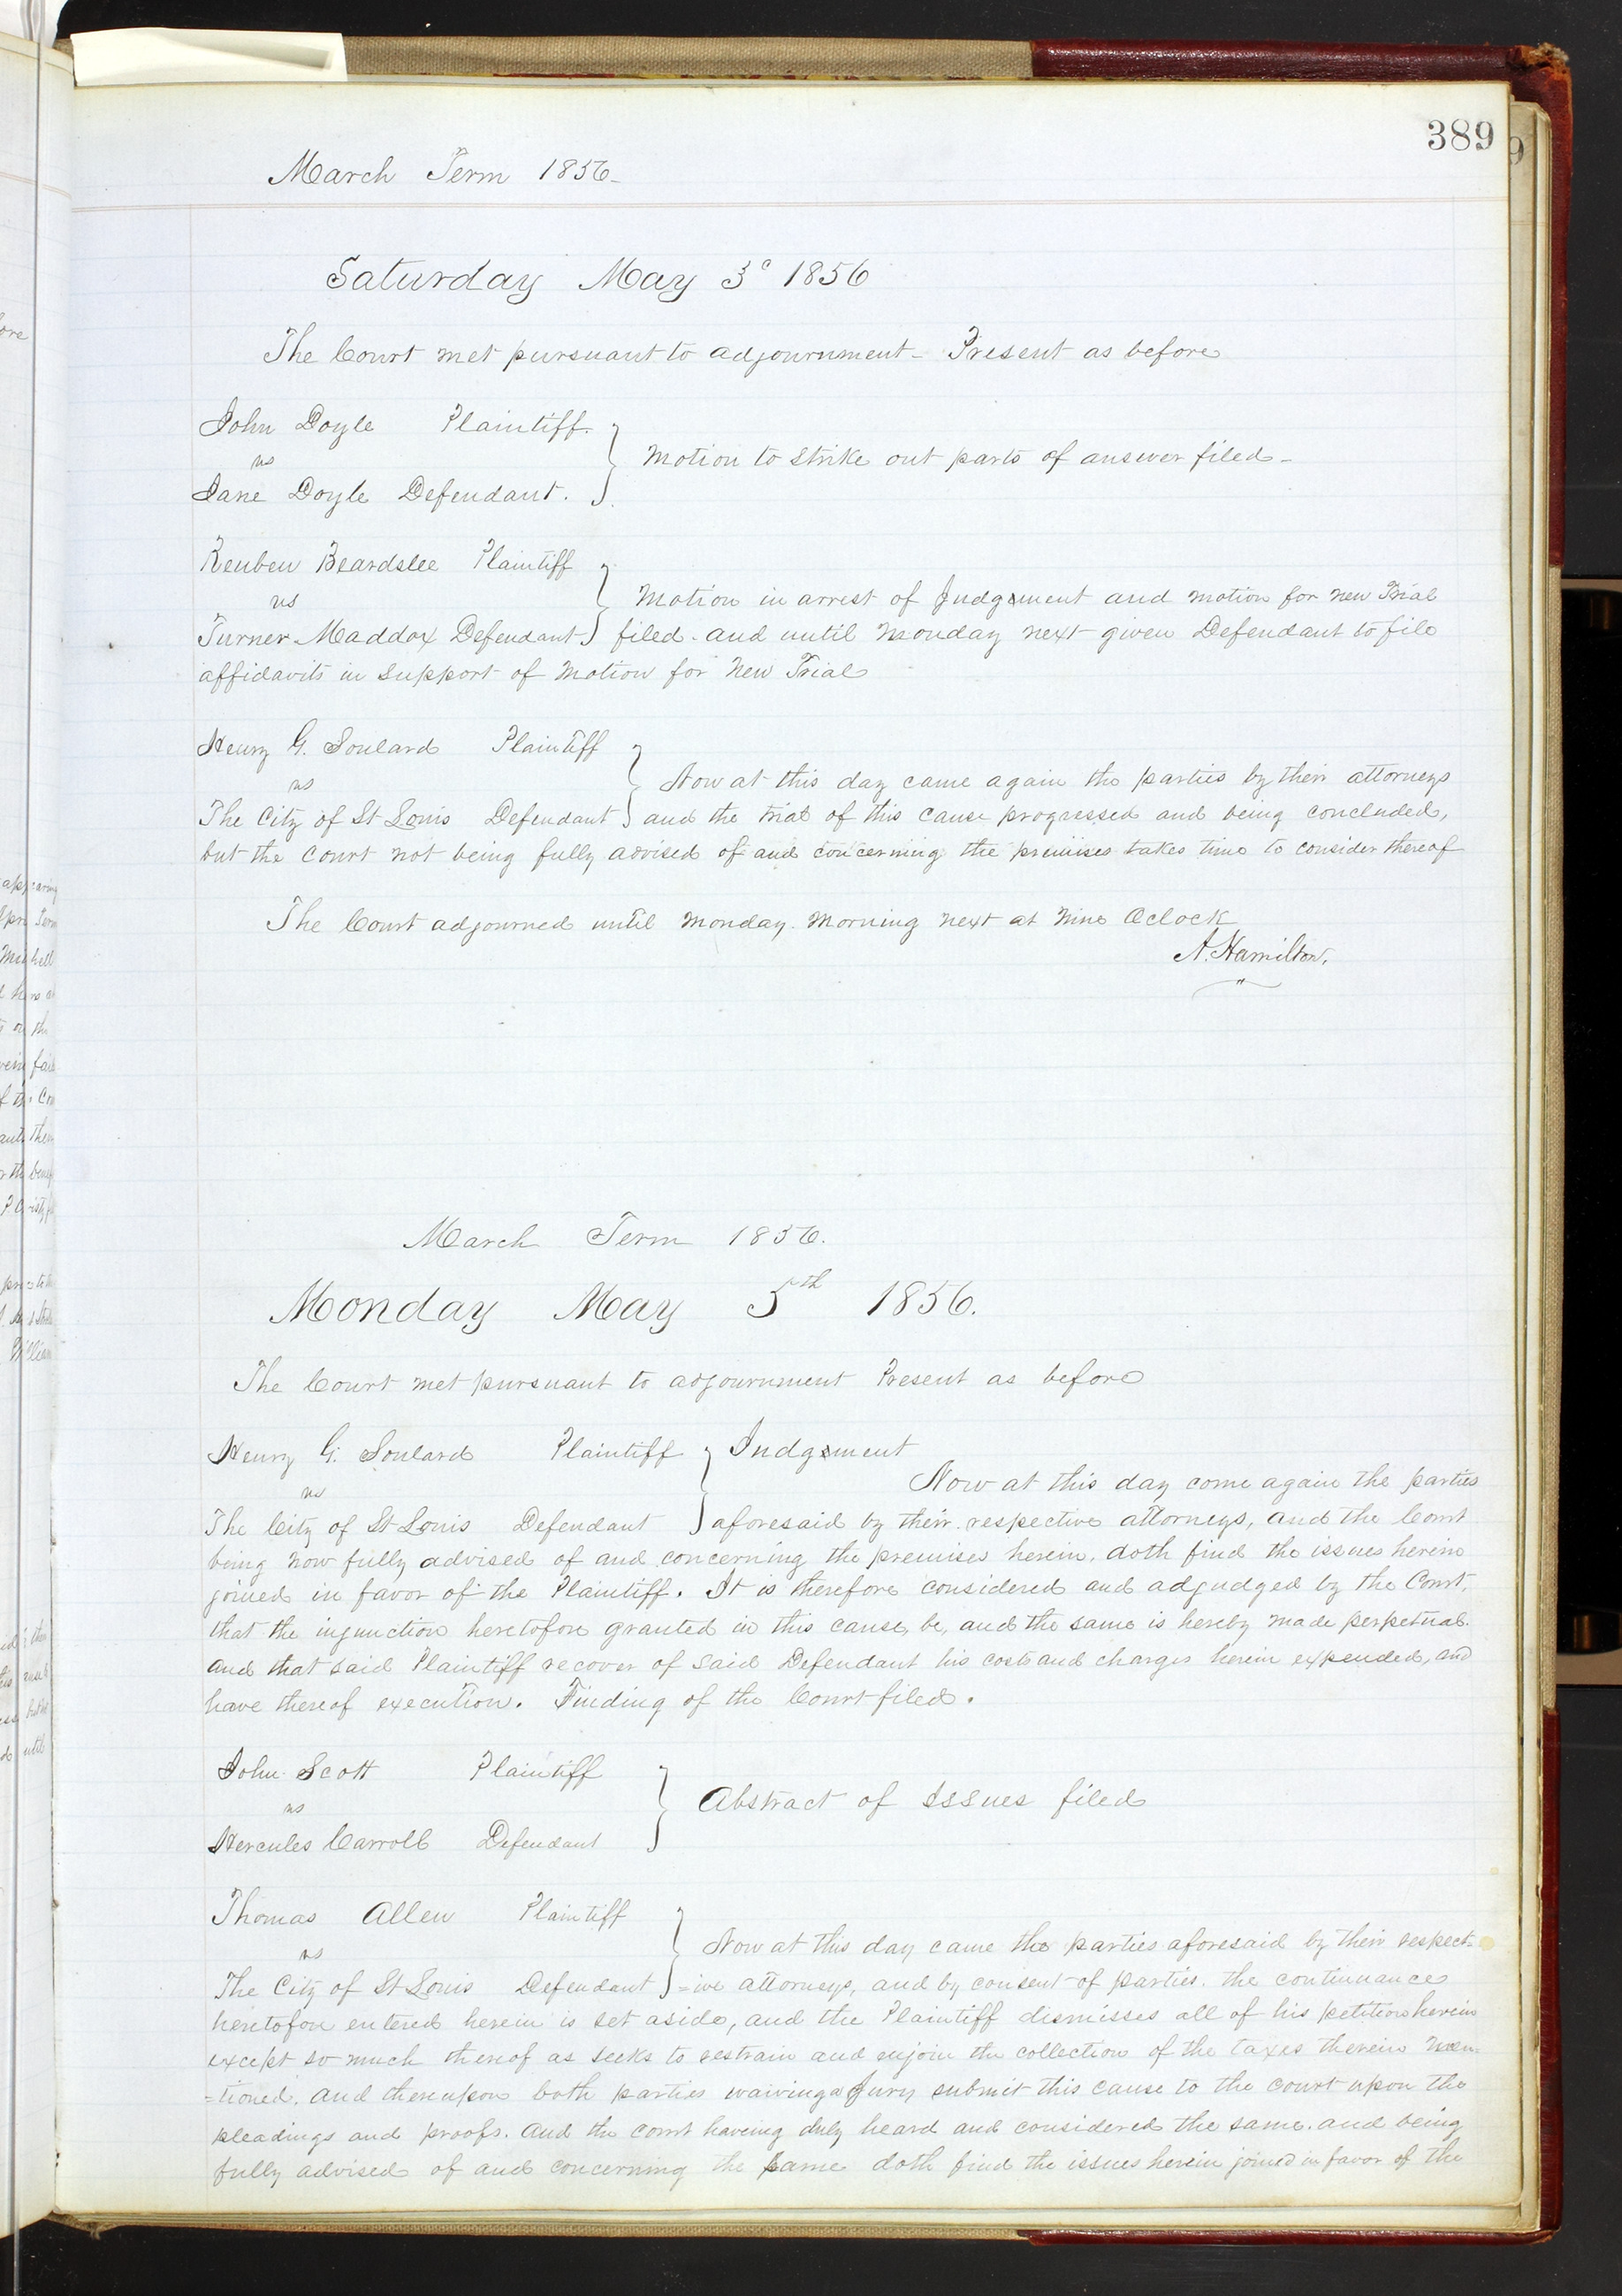 389
March Term 1856
Saturday May 3d 1856
The Court met pursuant to adjournment - Present as before
John Doyle Plaintiff
vs
Jane Doyle Defendant.
Motion to Strike out parts of answer filed -
Reuben Beardslee Plaintiff
vs
Motion in arrest of Judgement and motion for new Trial
Turner Maddox Defendant filed - and until Monday next given Defendant to file
affidavits in support of Motion for New Trial
Henry G. Soulard Plaintiff
vs
Now at this day came again the parties by their attorneys
The City of St Louis Defendant and the trial of this cause progressed and being concluded,
but the Court not being fully advised of and concerning the premises takes time to consider thereof
The Court adjourned until Monday Morning next at Nine Oclock
A. Hamilton.
March Term 1856.
Monday May 5th 1856.
The Court met pursuant to adjournment Present as before
Henry G. Soulard Plaintiff Judgement
Now at this day come again the parties
vs
The City of St Louis Defendant aforesaid by their respective attorneys, and the Court
being now fully advised of and concerning the premises herein, doth find the issues herein
joined in favor of the Plaintiff. It is therefore considered and adjudged by the Court,
that the injunction heretofore granted in this cause, be, and the same is hereby made perpetual.
and that said Plaintiff recover of said Defendant his costs and charges herein expended, and
have thereof execution. Finding of the Court filed.
John Scott Plaintiff
vs
Hercules Carroll Defendant
Abstract of Issues filed
Thomas Allen Plaintiff
vs
Now at this day came the parties aforesaid by their respect-
The City of St Louis Defendant =ive attorneys, and by consent of parties. the continuance
heretofore entered herein is set aside, and the Plaintiff dismisses all of his petition herein
except so much thereof as seeks to restrain and enjoin the collection of the taxes therein men-
=tioned. and thereupon both parties waiving a Jury submit this cause to the court upon the
pleadings and proofs. And the court having duly heard and considered the same. and being
fully advised of and concerning the same doth find the issues herein joined in favor of the